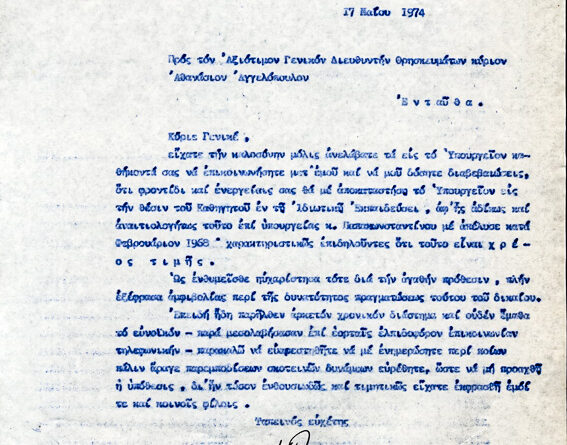 17 Μαΐου 1974
Πρός τόν Ἀξιότιμον Γενικόν Διευθυντήν Θρησκευμάτων κύριον
Ἀθανάσιον Ἀγγελόπουλον
Ἐ ν τ α ῦ θ α .
Κύριε Γενικέ ,
εἴχατε τήν καλοσύνην μόλις ἀνελάβατε τά εἰς τό Ὑπουργεῖον κα-
θήκοντά σας νά ἐπικοινωνήσητε μετ' ἐμοῦ καί νά μοῦ δώσητε διαβεβαιώσεις,
ὅτι φροντίδι καί ἐνεργείαις σας θά μέ ἀποκαταστήσῃ τό Ὑπουργεῖον εἰς
τήν θέσιν τοῦ Καθηγητοῦ ἐν τῇ Ἰδιωτικῇ Ἐκπαιδεύσει , ἀφ' ἧς ἀδίκως καί
ἀναιτιολογήτως τοῦτο ἐπί ὑπουργίας κ. Παπακωνσταντίνου μέ ἀπέλυσε κατά
Φεβρουάριον 1968 · χαρακτηριστικῶς ἐπιδηλοῦντες ὅτι τοῦτο εἶναι χ ρ έ -
ο ς τ ι μ ῆ ς .
Ὡς ἐνθυμεῖσθε ηὐχαρίστησα τότε διά τήν ἀγαθήν πρόθεσιν , πλήν
ἐξέφρασα ἀμφιβολίας περί τῆς δυνατότητος πραγματώσεως τούτου τοῦ δικαίου.
Ἐπειδή ἤδη παρῆλθεν ἀρκετόν χρονικόν διάστημα καί οὐδέν ἔμαθα
τό εὐνοϊκόν – παρά μεσολαβήσασαν ἐπί ἑορταῖς ἐλπιδοφόρον ἐπικοινωνίαν
τηλεφωνικήν – παρακαλῶ νά εὐαρεστηθῆτε νά μέ ἐνημερώσητε περί ποίων
πάλιν ἆραγε παρεμποδίσεων σκοτεινῶν δυνάμεων εὑρέθητε, ὥστε νά μή προαχθῇ
ἡ ὑπόθεσις , δι' ἥν τόσον ἐνθουσιωδῶς καί τιμητικῶς εἴχατε ἐκφρασθῆ ἐμοί
τε καί κοινοῖς φίλοις .
Ταπεινός εὐχέτης